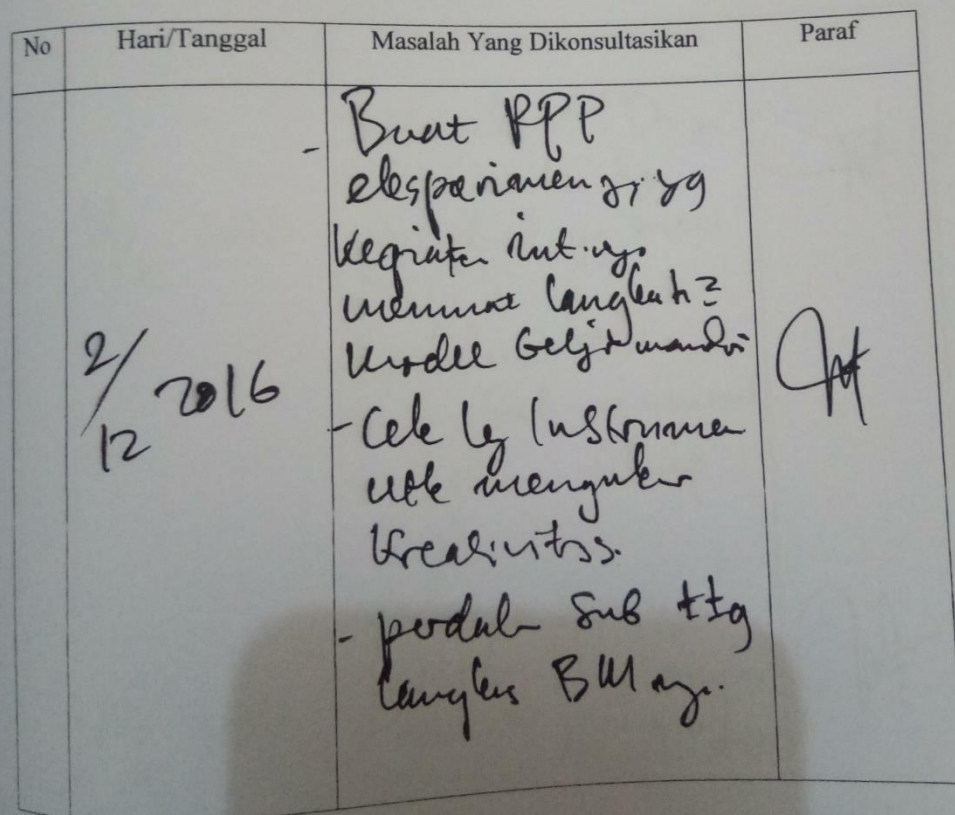 No Hari/Tanggal Masalah Yang Dikonsultasikan Paraf
- Buat RPP
eksperimen yg
kegiatan intinya
memuat langkah2
model belajar mandiri
2/12 2016
- Cek lg Instrumen
utk mengukur
kreativitas.
- perdalam sub ttg
langkah BM nya.